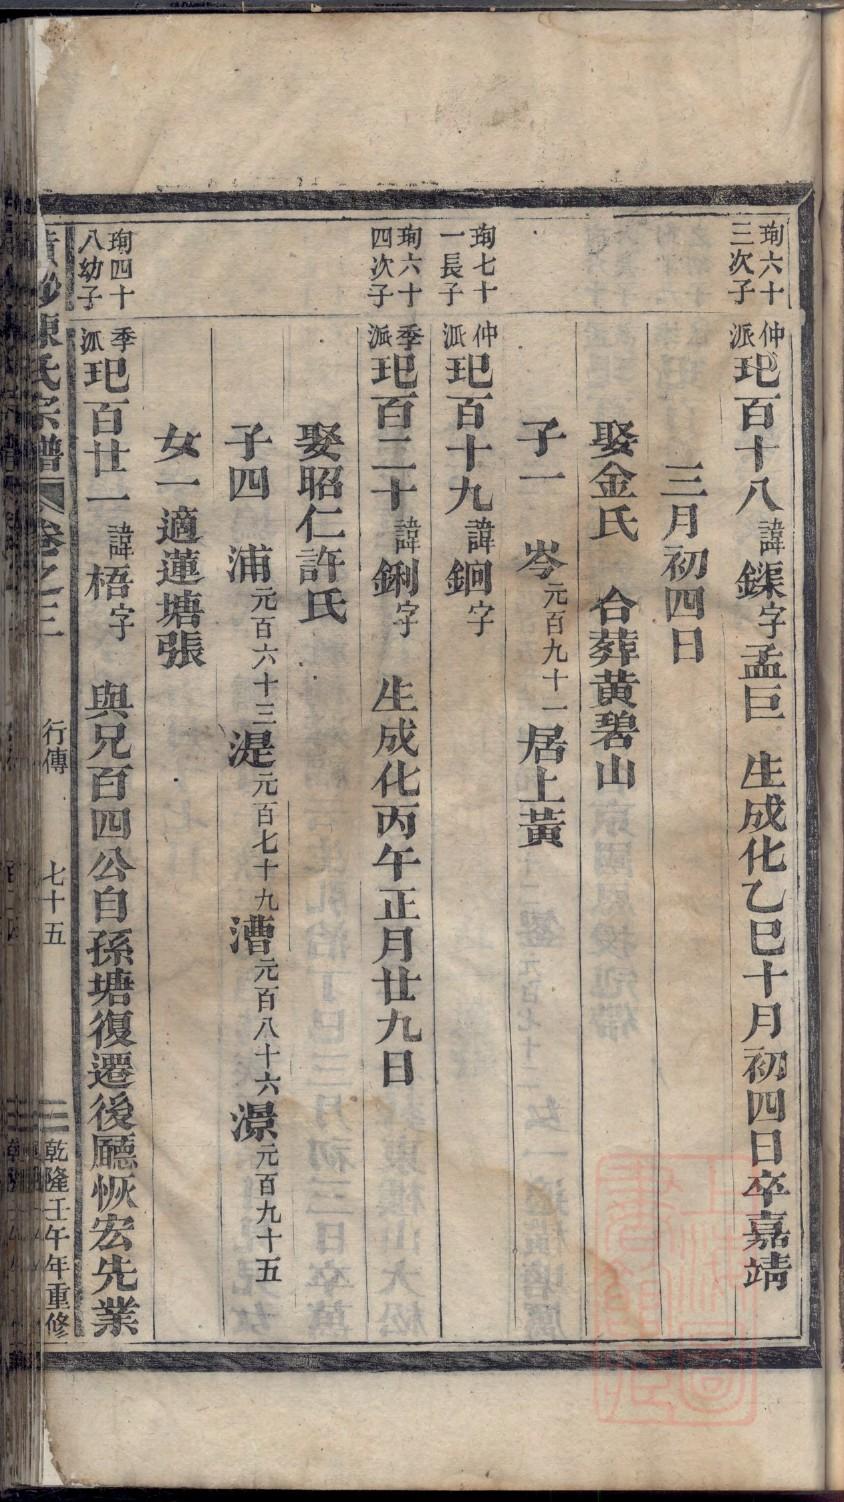 珣六十
三次子
仲派玘百十八諱鏶字孟巨　生成化乙巳十月初四日卒嘉靖
三月初四日
娶金氏　合葬黄碧山
子一　岑元百九十一居上黃
珣七十
一長子
仲派玘百十九諱鉰字
珣六十
四次子
季派玘百二十諱鋓字　生成化丙午正月廿九日
娶昭仁許氏
子四　浦元百六十三湜元百七十九漕元百八十六澋元百九十五
女一適蓮塘張
珣四十
八幼子
季派玘百廿一諱梧字　與兄百四公自孫塘復遷後廳恢宏先業
陳氏宗譜　卷之三　行傳　七十五　乾隆壬午年重修